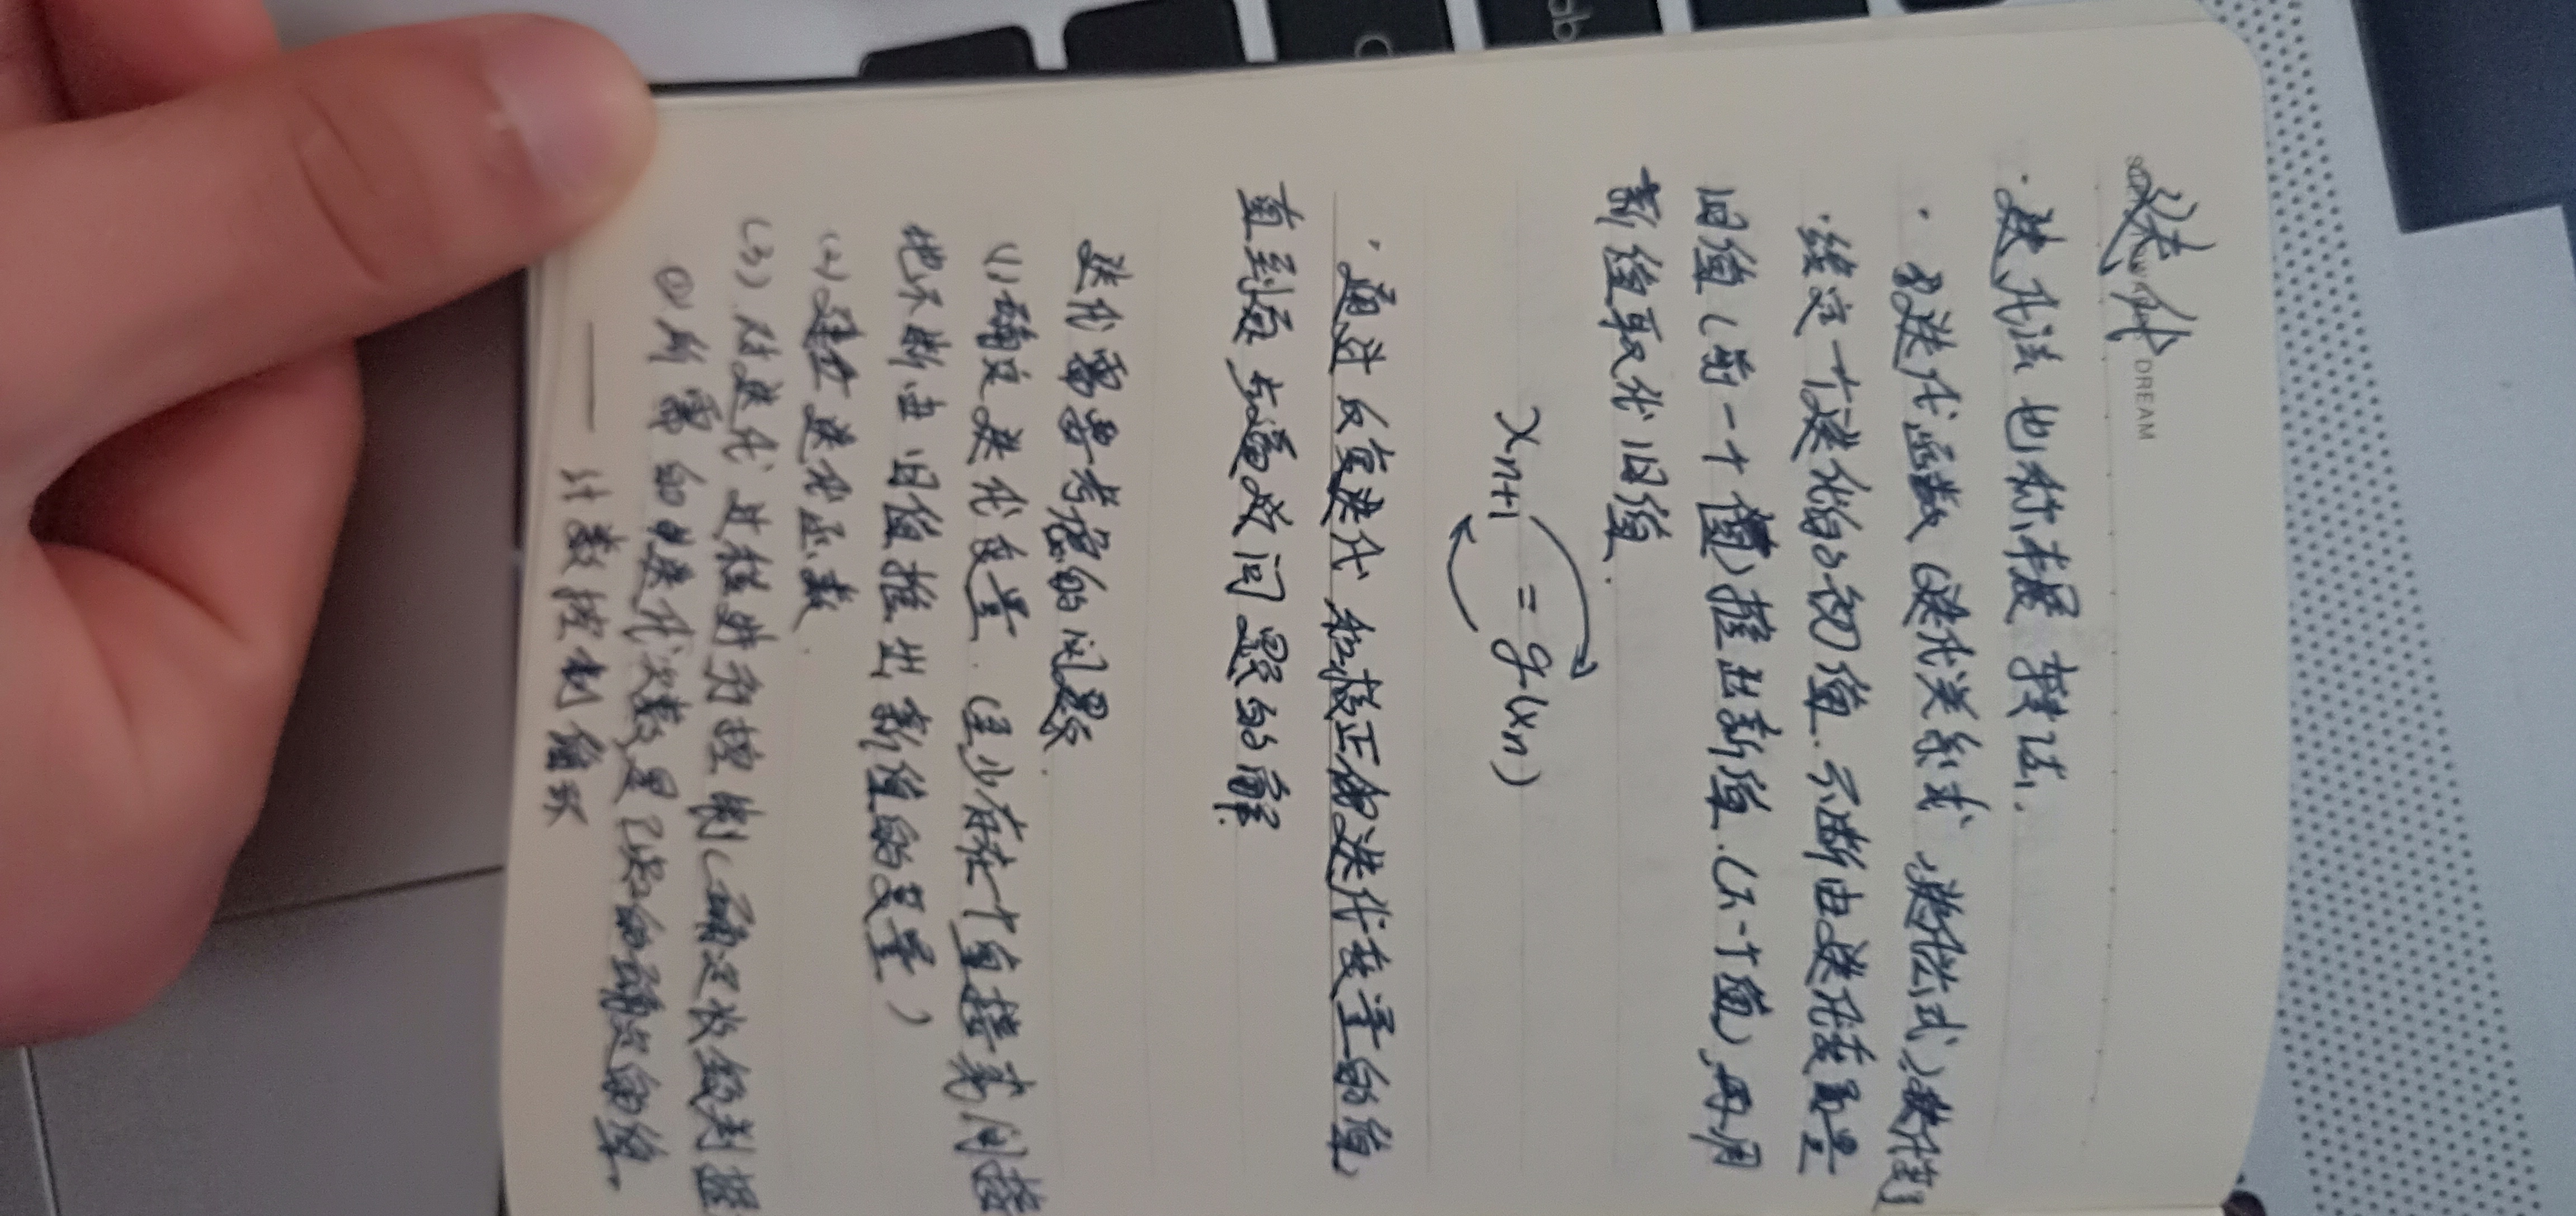 迭代
DREAM
·迭代法也称辗转法.
·用迭代函数(迭代关系式、递推公式)迭代
·给定一个迭代的初值.不断由迭代变量
旧值(前一个值)推出新值.(下一个值),再用
新值取代旧值.
xn+1 = g(xn)
·通过反复迭代和校正的迭代变量的值,
直到逐步逼近问题的解.
迭代需要考虑的问题.
(1)确定迭代变量.(至少存在一个直接或间接
地不断由旧值推出新值的变量)
(2)建立迭代函数.
(3)对迭代过程进行控制(确定收敛判据
①所需的迭代次数是已知的确定的值.
—— 计数控制循环